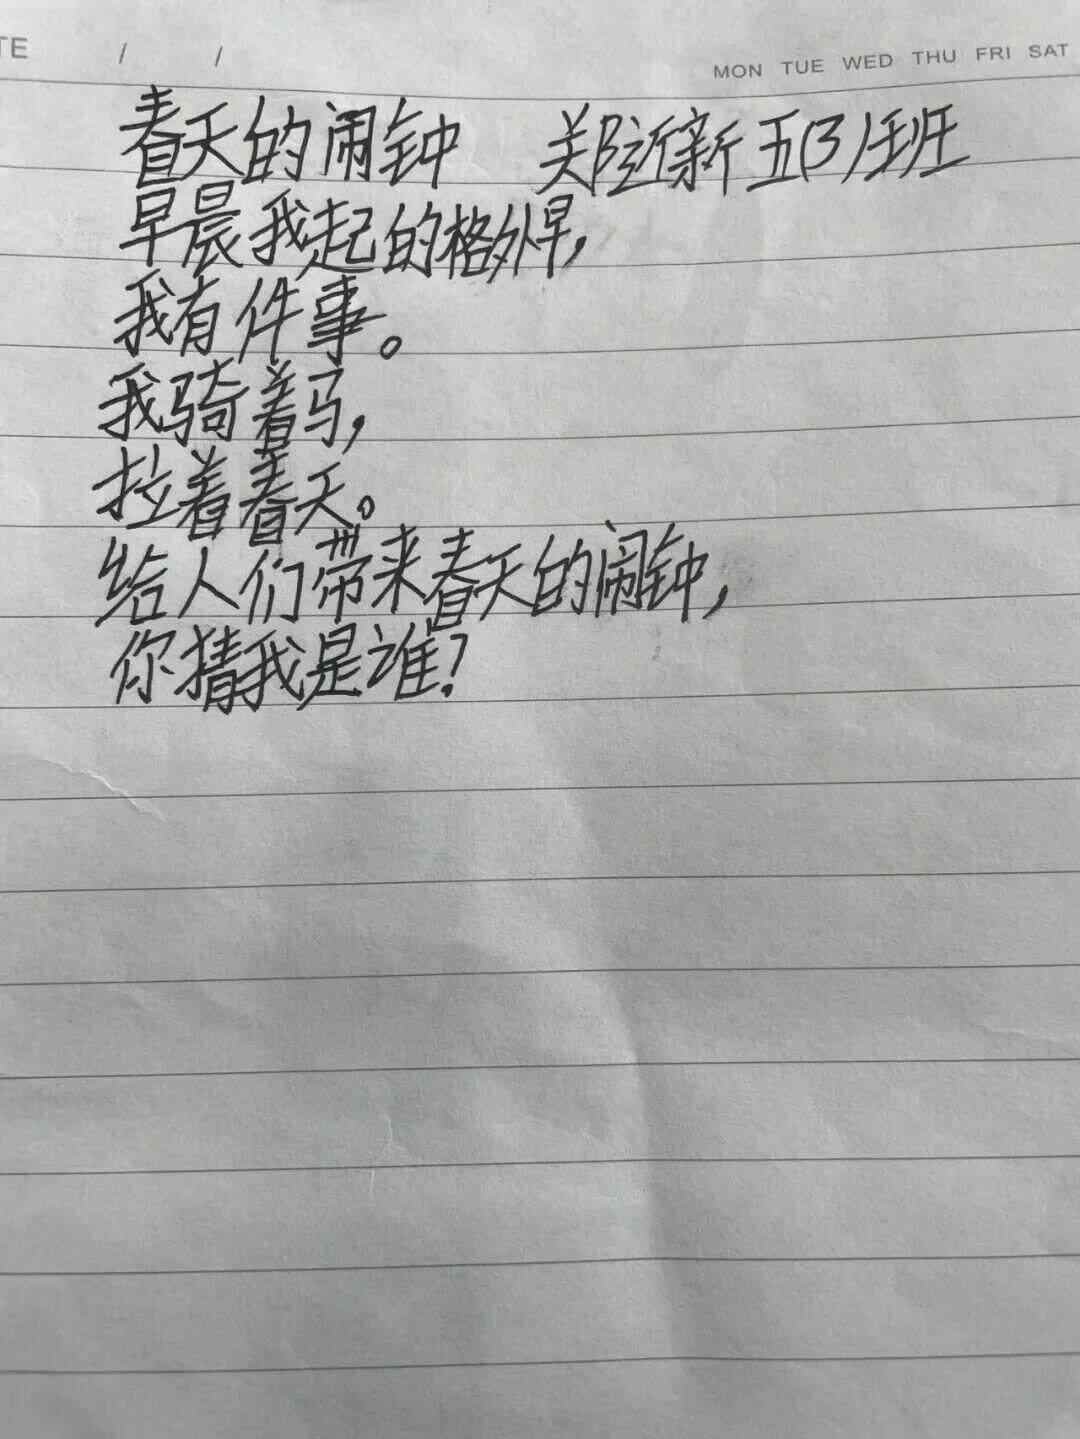 TE / /
MON TUE WED THU FRI SAT
春天的闹钟 郑近新 五(3)班
早晨我起的格外早,
我有件事。
我骑着马,
拉着春天。
给人们带来春天的闹钟,
你猜我是谁?